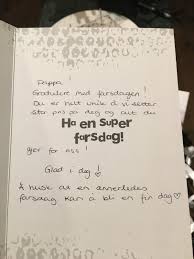 Pappa!
Gratulere med farsdagen!
Du er helt unik d vi setter
stor pris på deg og alt du
Ha en super
farsdag!
gjør for oss!
Glad i deg!
Å huse at en annerledes
farsdag kan å bli en fin dag ♡